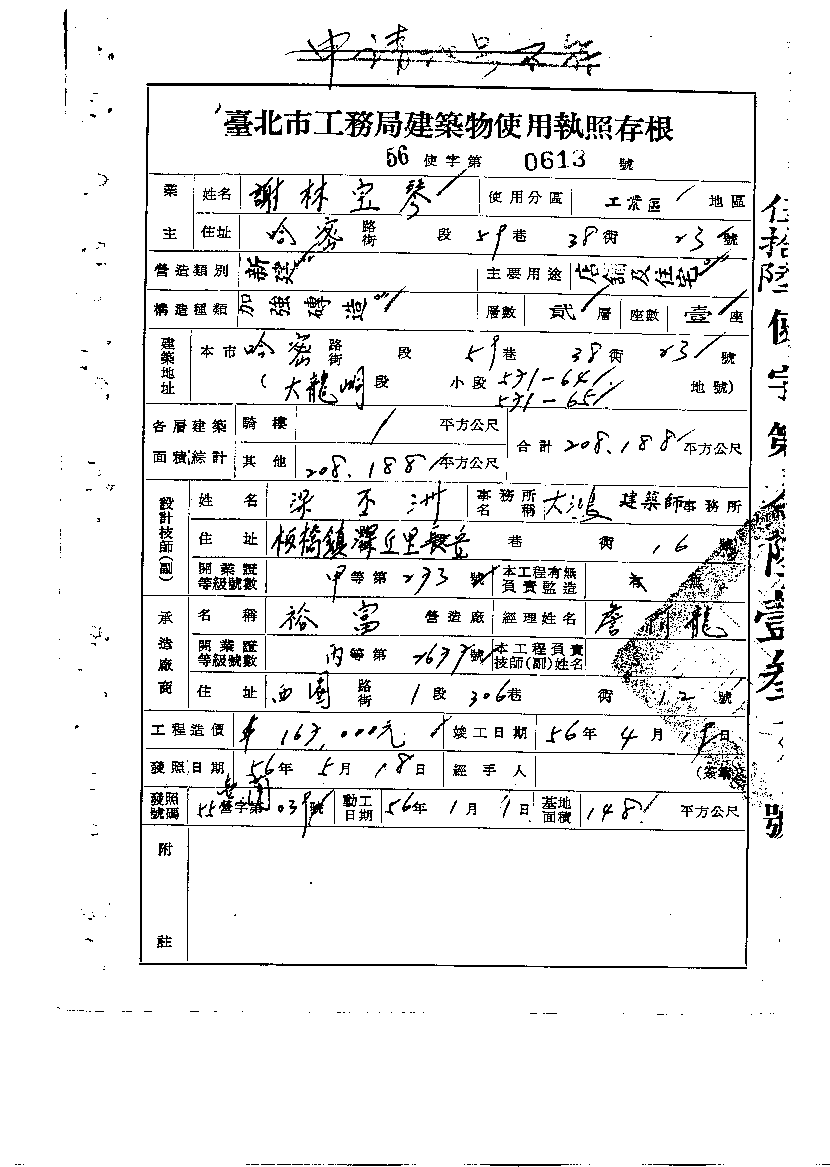 臺北市工務局建築物使用執照存根
56 使字第 0613 號
業主 姓名 謝林宝琴 使用分區 工業區 地區
住址 哈密 路街 段 59巷 38衖 23 號
營造類別 新建 主要用途 店舖及住宅
構造種類 加強磚造 層數 貳層 座數 壹座
建築地址 本市 哈密 路街 段 59巷 38衖 23 號
(大龍峒段 小段 531-64 地號)
531-65
各層建築面積綜計 騎樓 / 平方公尺 合計 208.188 平方公尺
其他 208.188 平方公尺
設計技師(副) 姓名 梁丕洲 事務所名稱 大鴻建築師事務所
住址 板橋鎮 巷 衖 16 號
開業證等級號數 甲等第 233 號 本工程有無負責監造 有
承造廠商 名稱 裕富 營造廠 經理姓名 龍
開業證等級號數 丙等第 號 本工程負責技師(副)姓名
住址 西園 路街 1段 306巷 衖 12 號
工程造價 163,000元 竣工日期 56年 4月 日
發照日期 56年 5月 18日 經手人 (簽章)
發照號碼 55營字第 號 動工日期 56年 1月 1日 基地面積 148 平方公尺
附註
伍拾陸使字第 陸壹叁 號